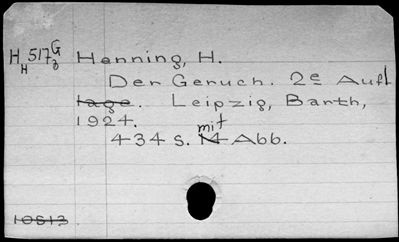 H H 517 G 3
Henning, H.
Der Geruch. 2e Aufl
lage. Leipzig, Barth,
1924.
434 S. mit 14 Abb.
10513